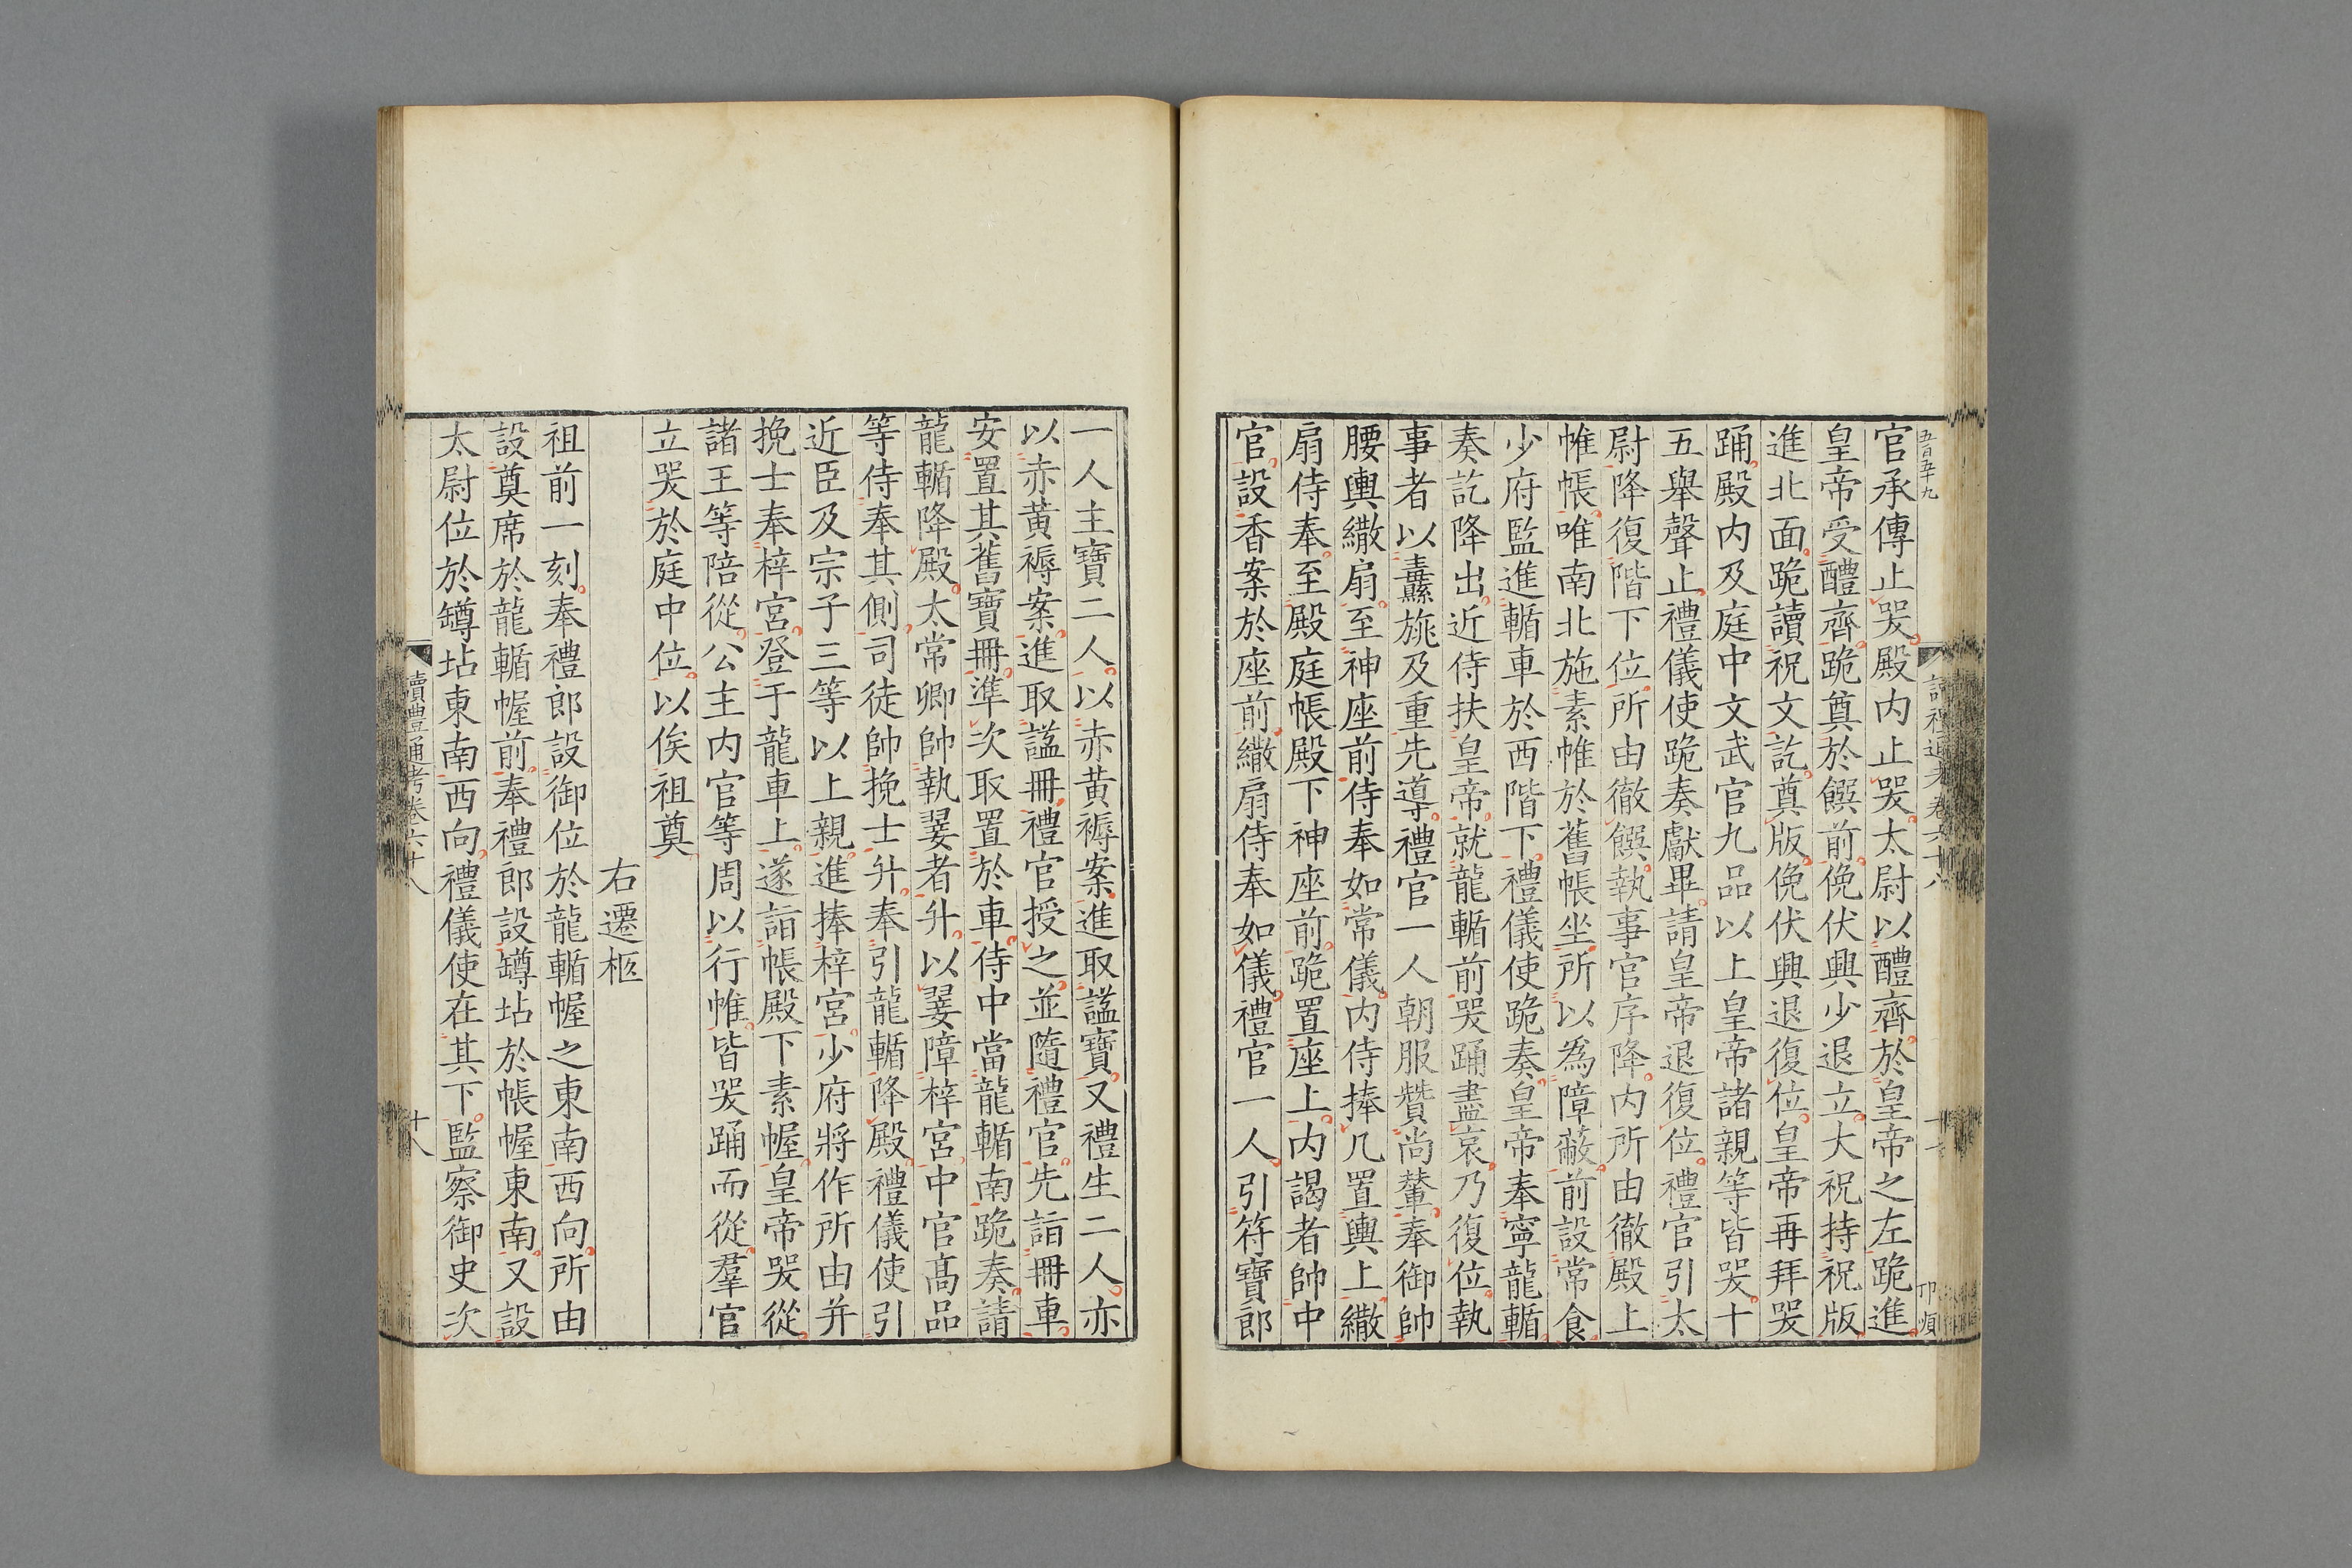 五百五十九
官承傳止哭殿内止哭太尉以醴齊於皇帝之左跪進
皇帝受醴齊跪奠於饌前俛伏興少退立大祝持祝版
進北面跪讀祝文訖奠版俛伏興退復位皇帝再拜哭
踊殿内及庭中文武官九品以上皇帝諸親等皆哭十
五舉聲止禮儀使跪奏獻畢請皇帝退復位禮官引太
尉降復階下位所由徹饌執事官序降内所由徹殿上
帷帳唯南北施素帷於舊帳坐所以為障蔽前設常食
少府監進輴車於西階下禮儀使跪奏皇帝奉寧龍輴
奏訖降出近侍扶皇帝就龍輴前哭踊盡哀乃復位執
事者以纛旐及重先導禮官一人朝服贊尚輦奉御帥
腰輿繖扇至神座前侍奉如常儀内侍捧几置輿上繖
扇侍奉至殿庭帳殿下神座前跪置座上内謁者帥中
官設香案於座前繖扇侍奉如儀禮官一人引符寶郎
一人主寶二人以赤黃褥案進取謚寶又禮生二人亦
以赤黃褥案進取謚冊禮官授之並隨禮官先詣冊車
安置其舊寶冊準次取置於車侍中當龍輴南跪奏請
龍輴降殿太常卿帥執翣者升以翣障梓宮中官高品
等侍奉其側司徒帥挽士升奉引龍輴降殿禮儀使引
近臣及宗子三等以上親進捧梓宮少府將作所由并
挽士奉梓宮登于龍車上遂詣帳殿下素幄皇帝哭從
諸王等陪從公主内官等周以行帷皆哭踊而從羣官
立哭於庭中位以俟祖奠
右遷柩
祖前一刻奉禮郎設御位於龍輴幄之東南西向所由
設奠席於龍輴幄前奉禮郎設罇坫於帳幄東南又設
太尉位於罇坫東南西向禮儀使在其下監察御史次
讀禮通考卷六十八
十八